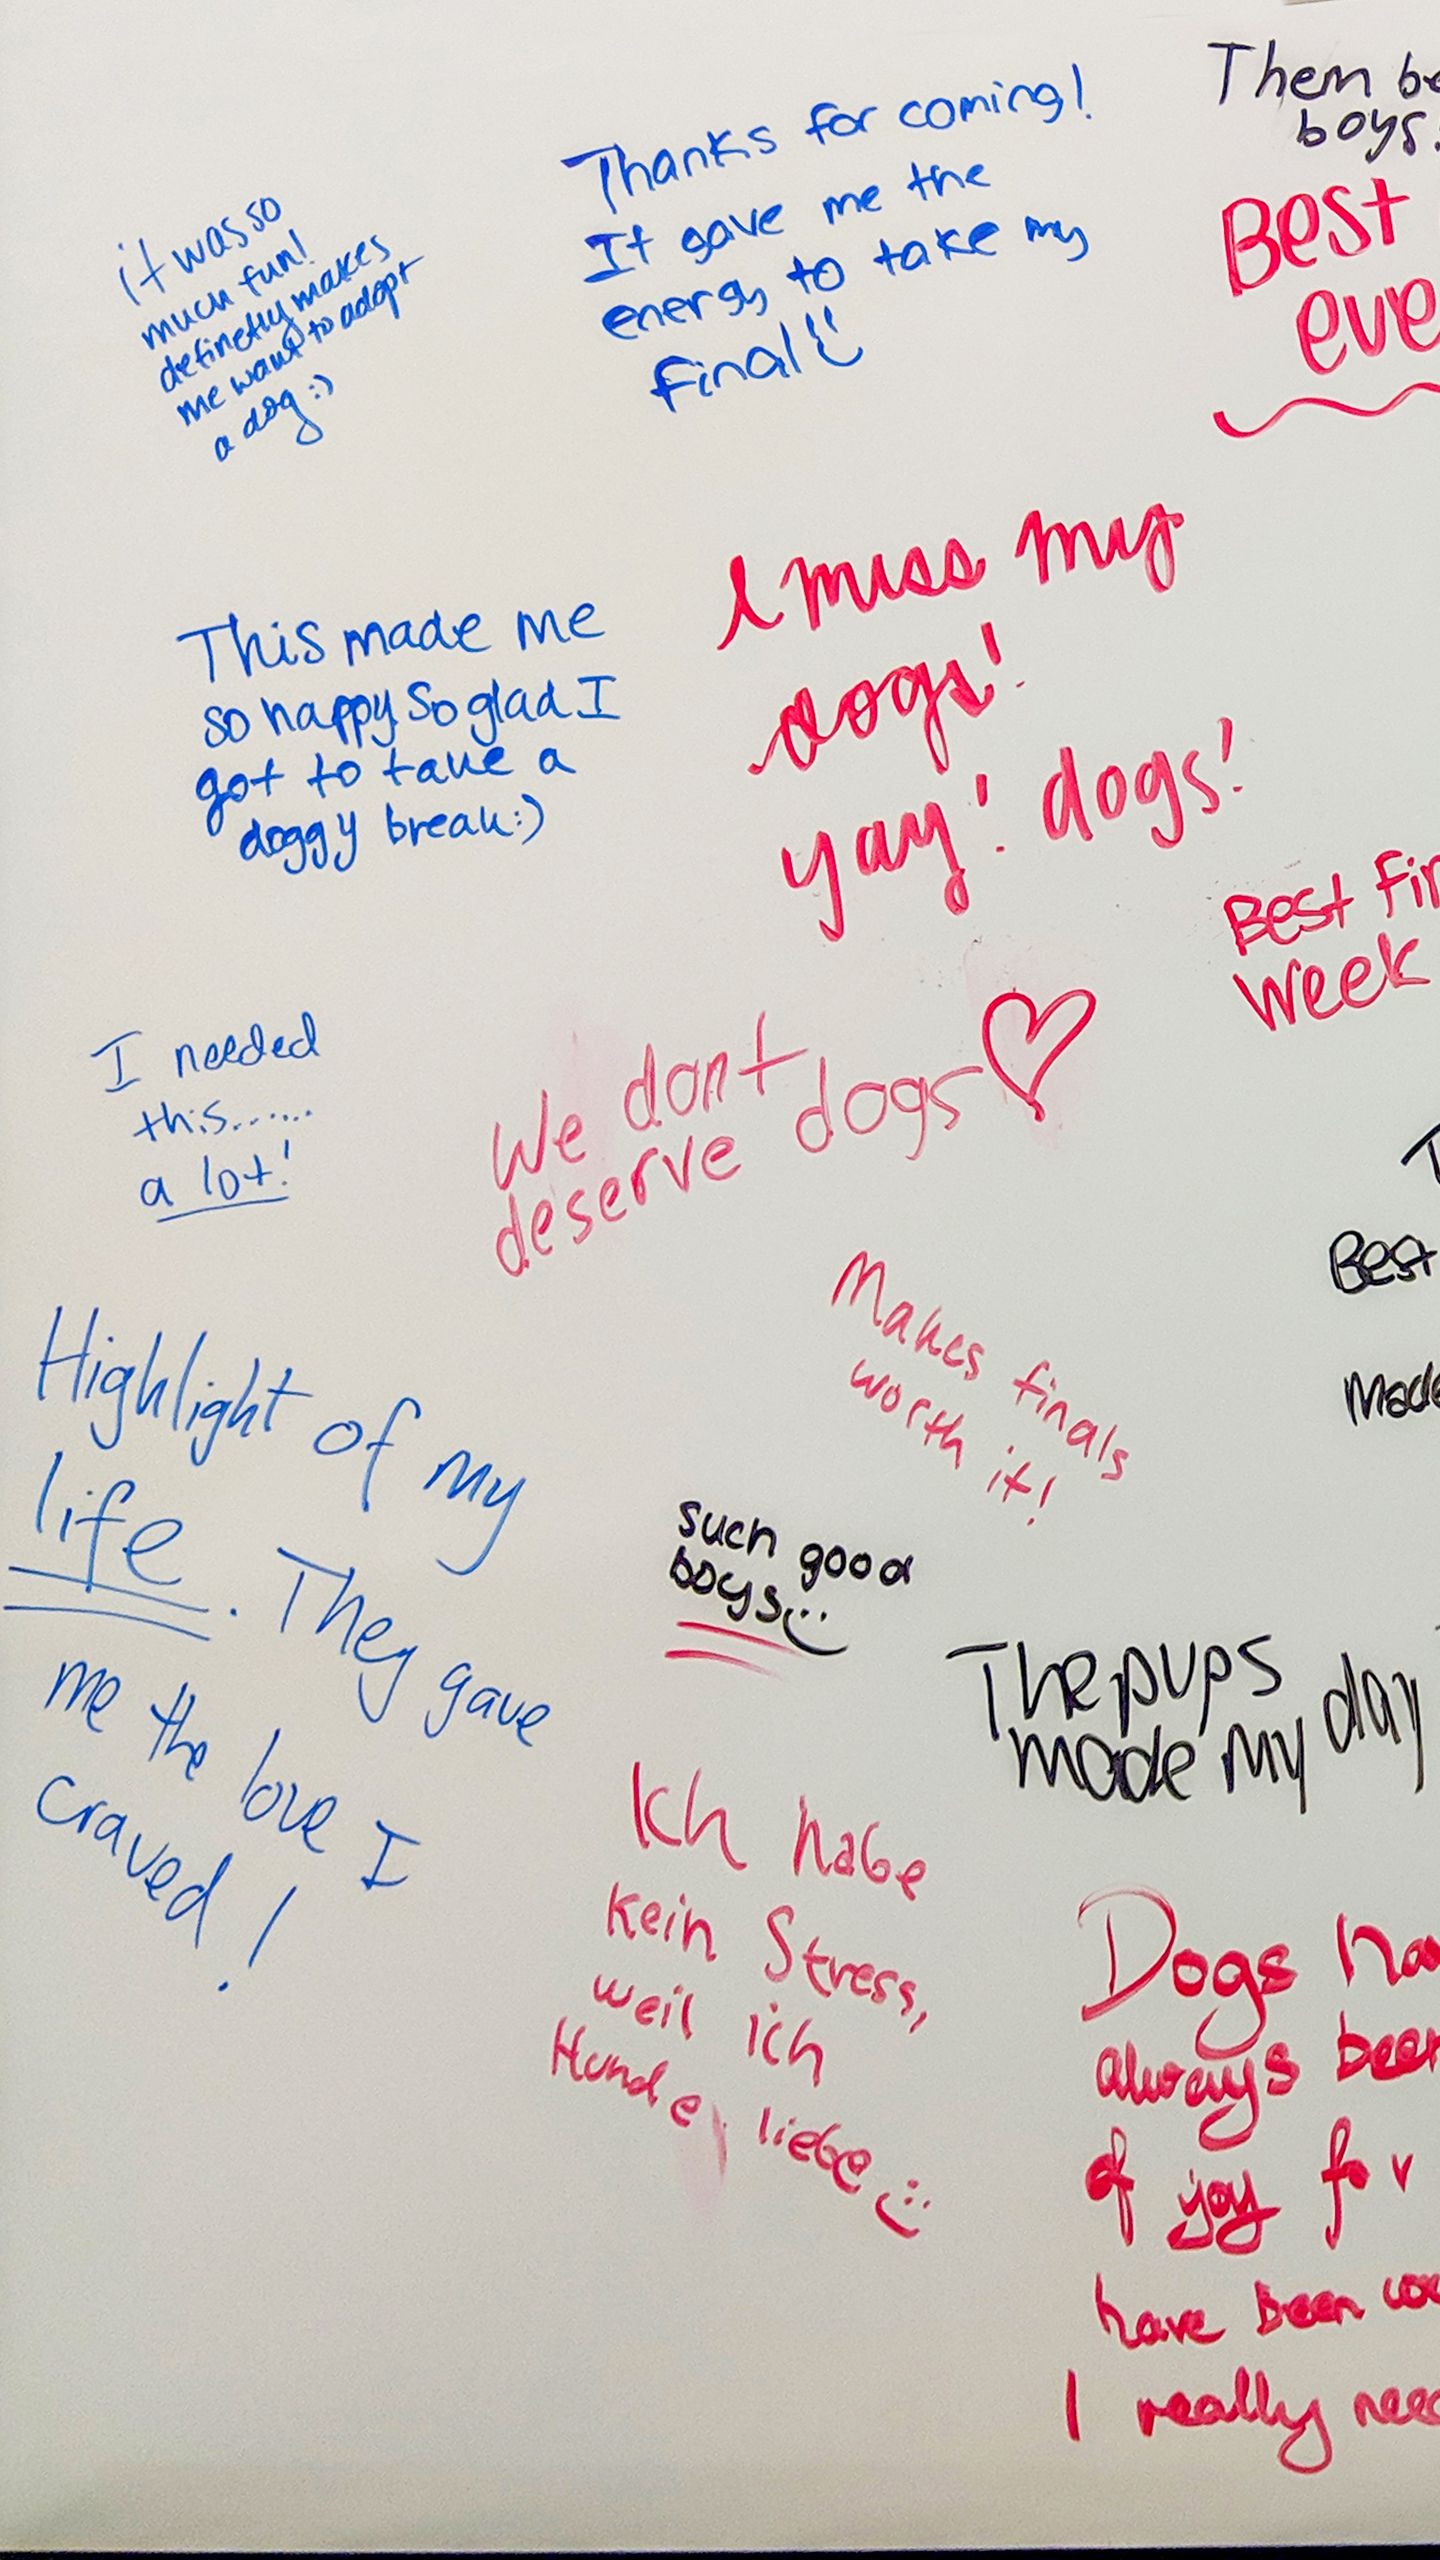 it was so
much fun!
definetly makes
me want to adopt
a dog :)
Thanks for coming!
It gave me the
energy to take my
final!
Them
boys
Best
This made me
so happy So glad I
got to take a
doggy break :)
I miss my
dogs!
yay! dogs!
Best
week
I needed
this......
a lot!
We dont
deserve dogs
Best
Makes finals
worth it!
Made
Highlight of my
life. They gave
me the love I
craved!
such good
boys
The pups
made my day
Ich habe
kein Stress,
weil ich
Hunde liebe
Dogs
always
of joy for
have been
I really